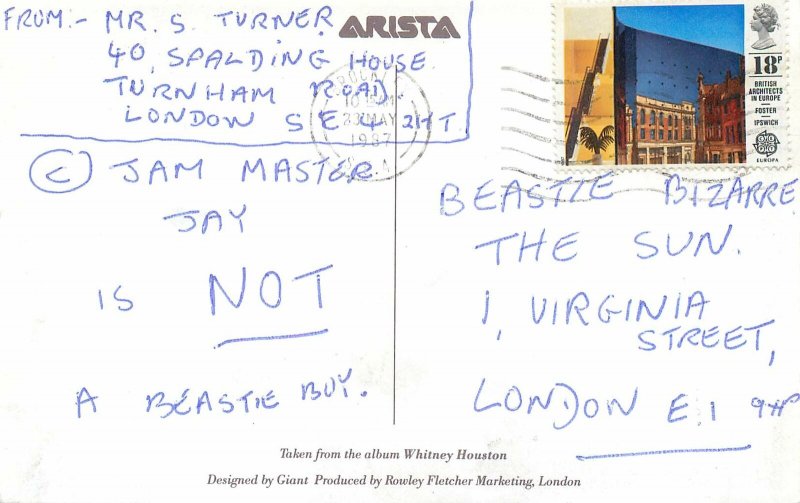 FROM:- MR. S TURNER
40, SPALDING HOUSE
TURNHAM ROAD.
LONDON S E 4 2HT
ARISTA
23 MAY
1987
18P
BRITISH
ARCHITECTS
IN EUROPE
FOSTER
IPSWICH
EUROPA
(C) JAM MASTER
JAY
IS NOT
A BEASTIE BOY.
BEASTIE BIZARRE
THE SUN.
1, VIRGINIA
STREET,
LONDON E.1 9HP
Taken from the album Whitney Houston
Designed by Giant Produced by Rowley Fletcher Marketing, London